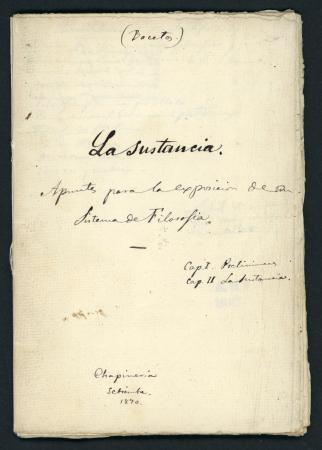 (Bocetos)
La sustancia.
Apuntes para la exposición de un
Sistema de Filosofía.
Cap I. Preliminares
Cap. II La Sustancia.
Chapinería
Setiembre
1870.